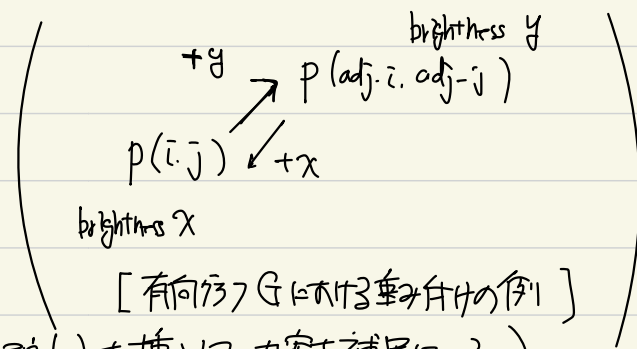 brightness y
+y
p(adj-i, adj-j)
p(i.j)
+x
brightness x
[有向グラフGにおける重み付けの例]